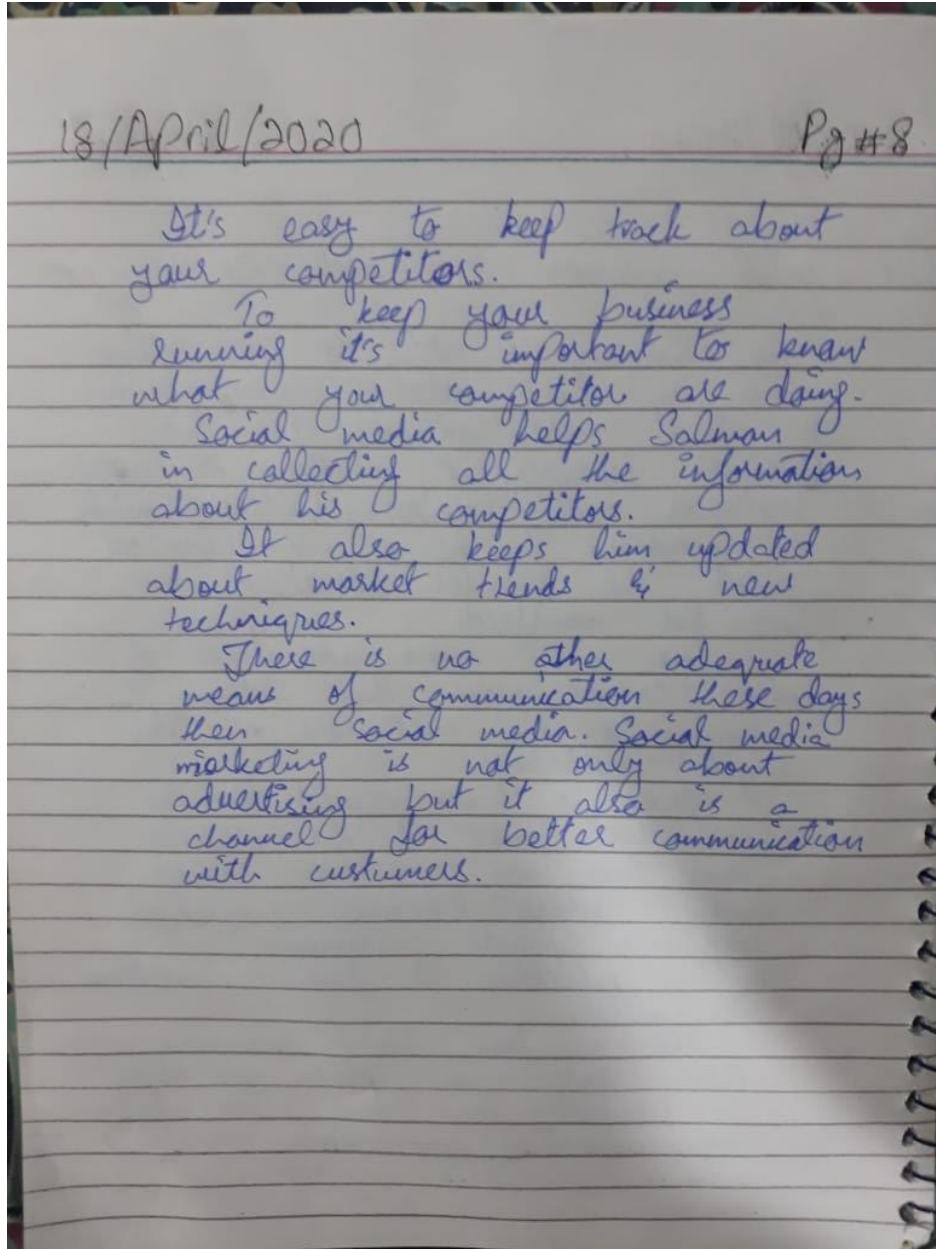 18/April/2020 Pg #8
It's easy to keep track about
your competitors.
To keep your business
running it's important to know
what your competitor are doing.
Social media helps Salman
in collecting all the information
about his competitors.
It also keeps him updated
about market trends & new
techniques.
There is no other adequate
means of communication these days
then social media. Social media
marketing is not only about
advertising but it also is a
channel for better communication
with custumers.